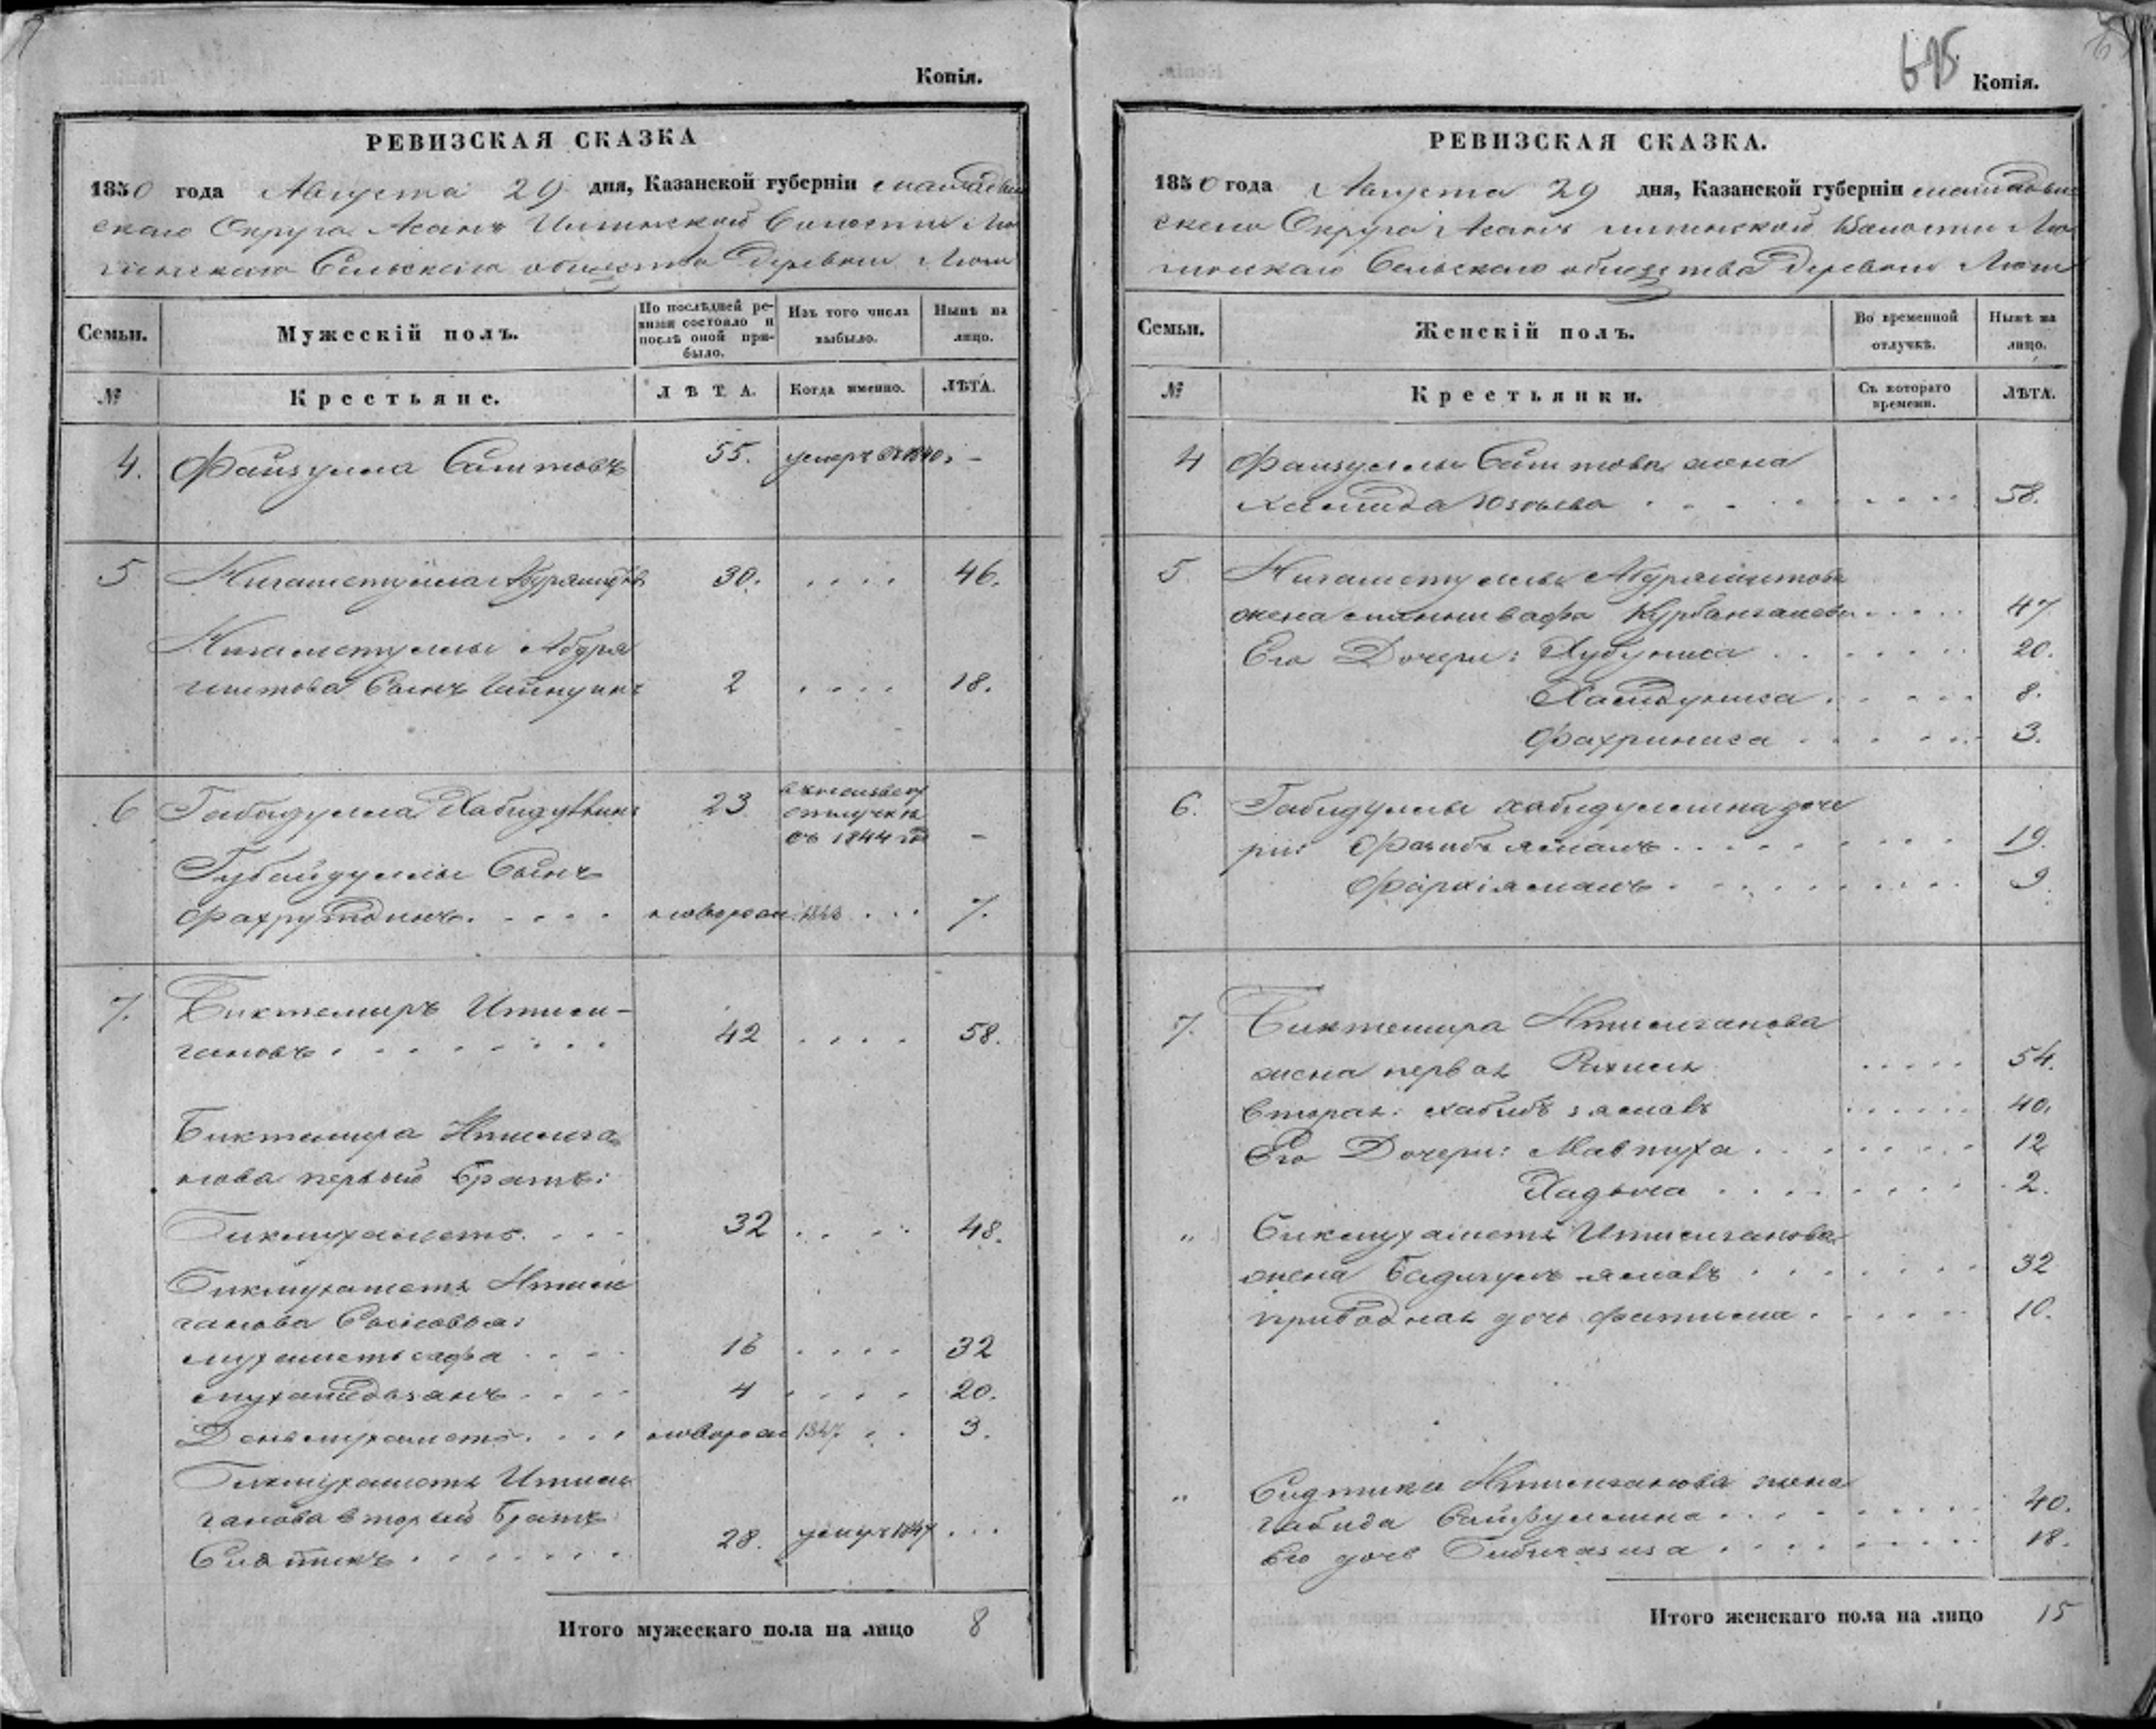 Копія.
РЕВИЗСКАЯ СКАЗКА
1850 года Августа 29 дня, Казанской губерніи мамадыш
скаго Округа Асанъ Илинской Волости Лю
гинскаго Сельскаго общества Деревни
Семьи.
Мужескій полъ.
По послѣдней ре-
визіи состояло и
послѣ оной при-
было.
Изъ того числа
выбыло.
Нынѣ на
лицо.
№
Крестьяне.
ЛѢТА.
Когда именно.
ЛѢТА.
4. Файзулла Саитовъ 55. умеръ въ 1840. -
5 Нигаметулла 30. .... 46.
Нигаметуллы Абдря
шитова Сынъ Гайнуллинъ 2 .... 18.
6 Габидулла Хабидуллинъ 23 
отлучкѣ
съ 1844 год -
Губайдуллы Сынъ
Фахрутдинъ..... новорож 1843 ... 7.
7. Биктемиръ Итили-
гановъ........ 42 .... 58.
Биктемира Итилига
нова первый братъ:
Бикмухаметъ.... 32 .... 48.
Бикмухаметъ Итили
ганова Сыновья:
мухаметьсафа .... 16 .... 32
мухамедзянъ .... 4 .... 20.
Динмухаметъ .... новорож 1847 .. 3.
Бикмухаметъ Итили
ганова вторый братъ
Сидтикъ....... 28. умеръ 1847 ...
Итого мужескаго пола на лицо 8
615
Копія.
РЕВИЗСКАЯ СКАЗКА.
1850 года Августа 29 дня, Казанской губерніи мамадыш
скаго Округа Асанъ илинской Волости Лю
гинскаго Сельскаго общества Деревни
Семьи.
Женскій полъ.
Во временной
отлучкѣ.
Нынѣ на
лицо.
№
Крестьянки.
Съ котораго
времени.
ЛѢТА.
4 Файзуллы Саитова жена
Хамида Юзѣева ........ 58.
5. Нигаметуллы Абдряшитова
жена Курбангалеева ..... 47
Его Дочери: Хубуниса ....... 20.
Хамдуниса ...... 8.
Фахриниса ...... 3.
6. Габидуллы хабидуллина доче
ри: ........ 19.
Фархіямалъ ........ 9.
7. Биктемира Итилиганова
жена первая ..... 54.
Вторая: хабибъ зямалъ ...... 40.
Его Дочери: Мавлиха ....... 12
Хадыча ....... 2.
" Бикмухаметя Итилиганова
жена Бадигулъ ямалъ ....... 32
приводная дочь фатима ..... 10.
" Сидтика Итилиганова жена
габида Сайфуллина ........ 40.
Его дочь Бибигазиза ........ 18.
Итого женскаго пола на лицо 15